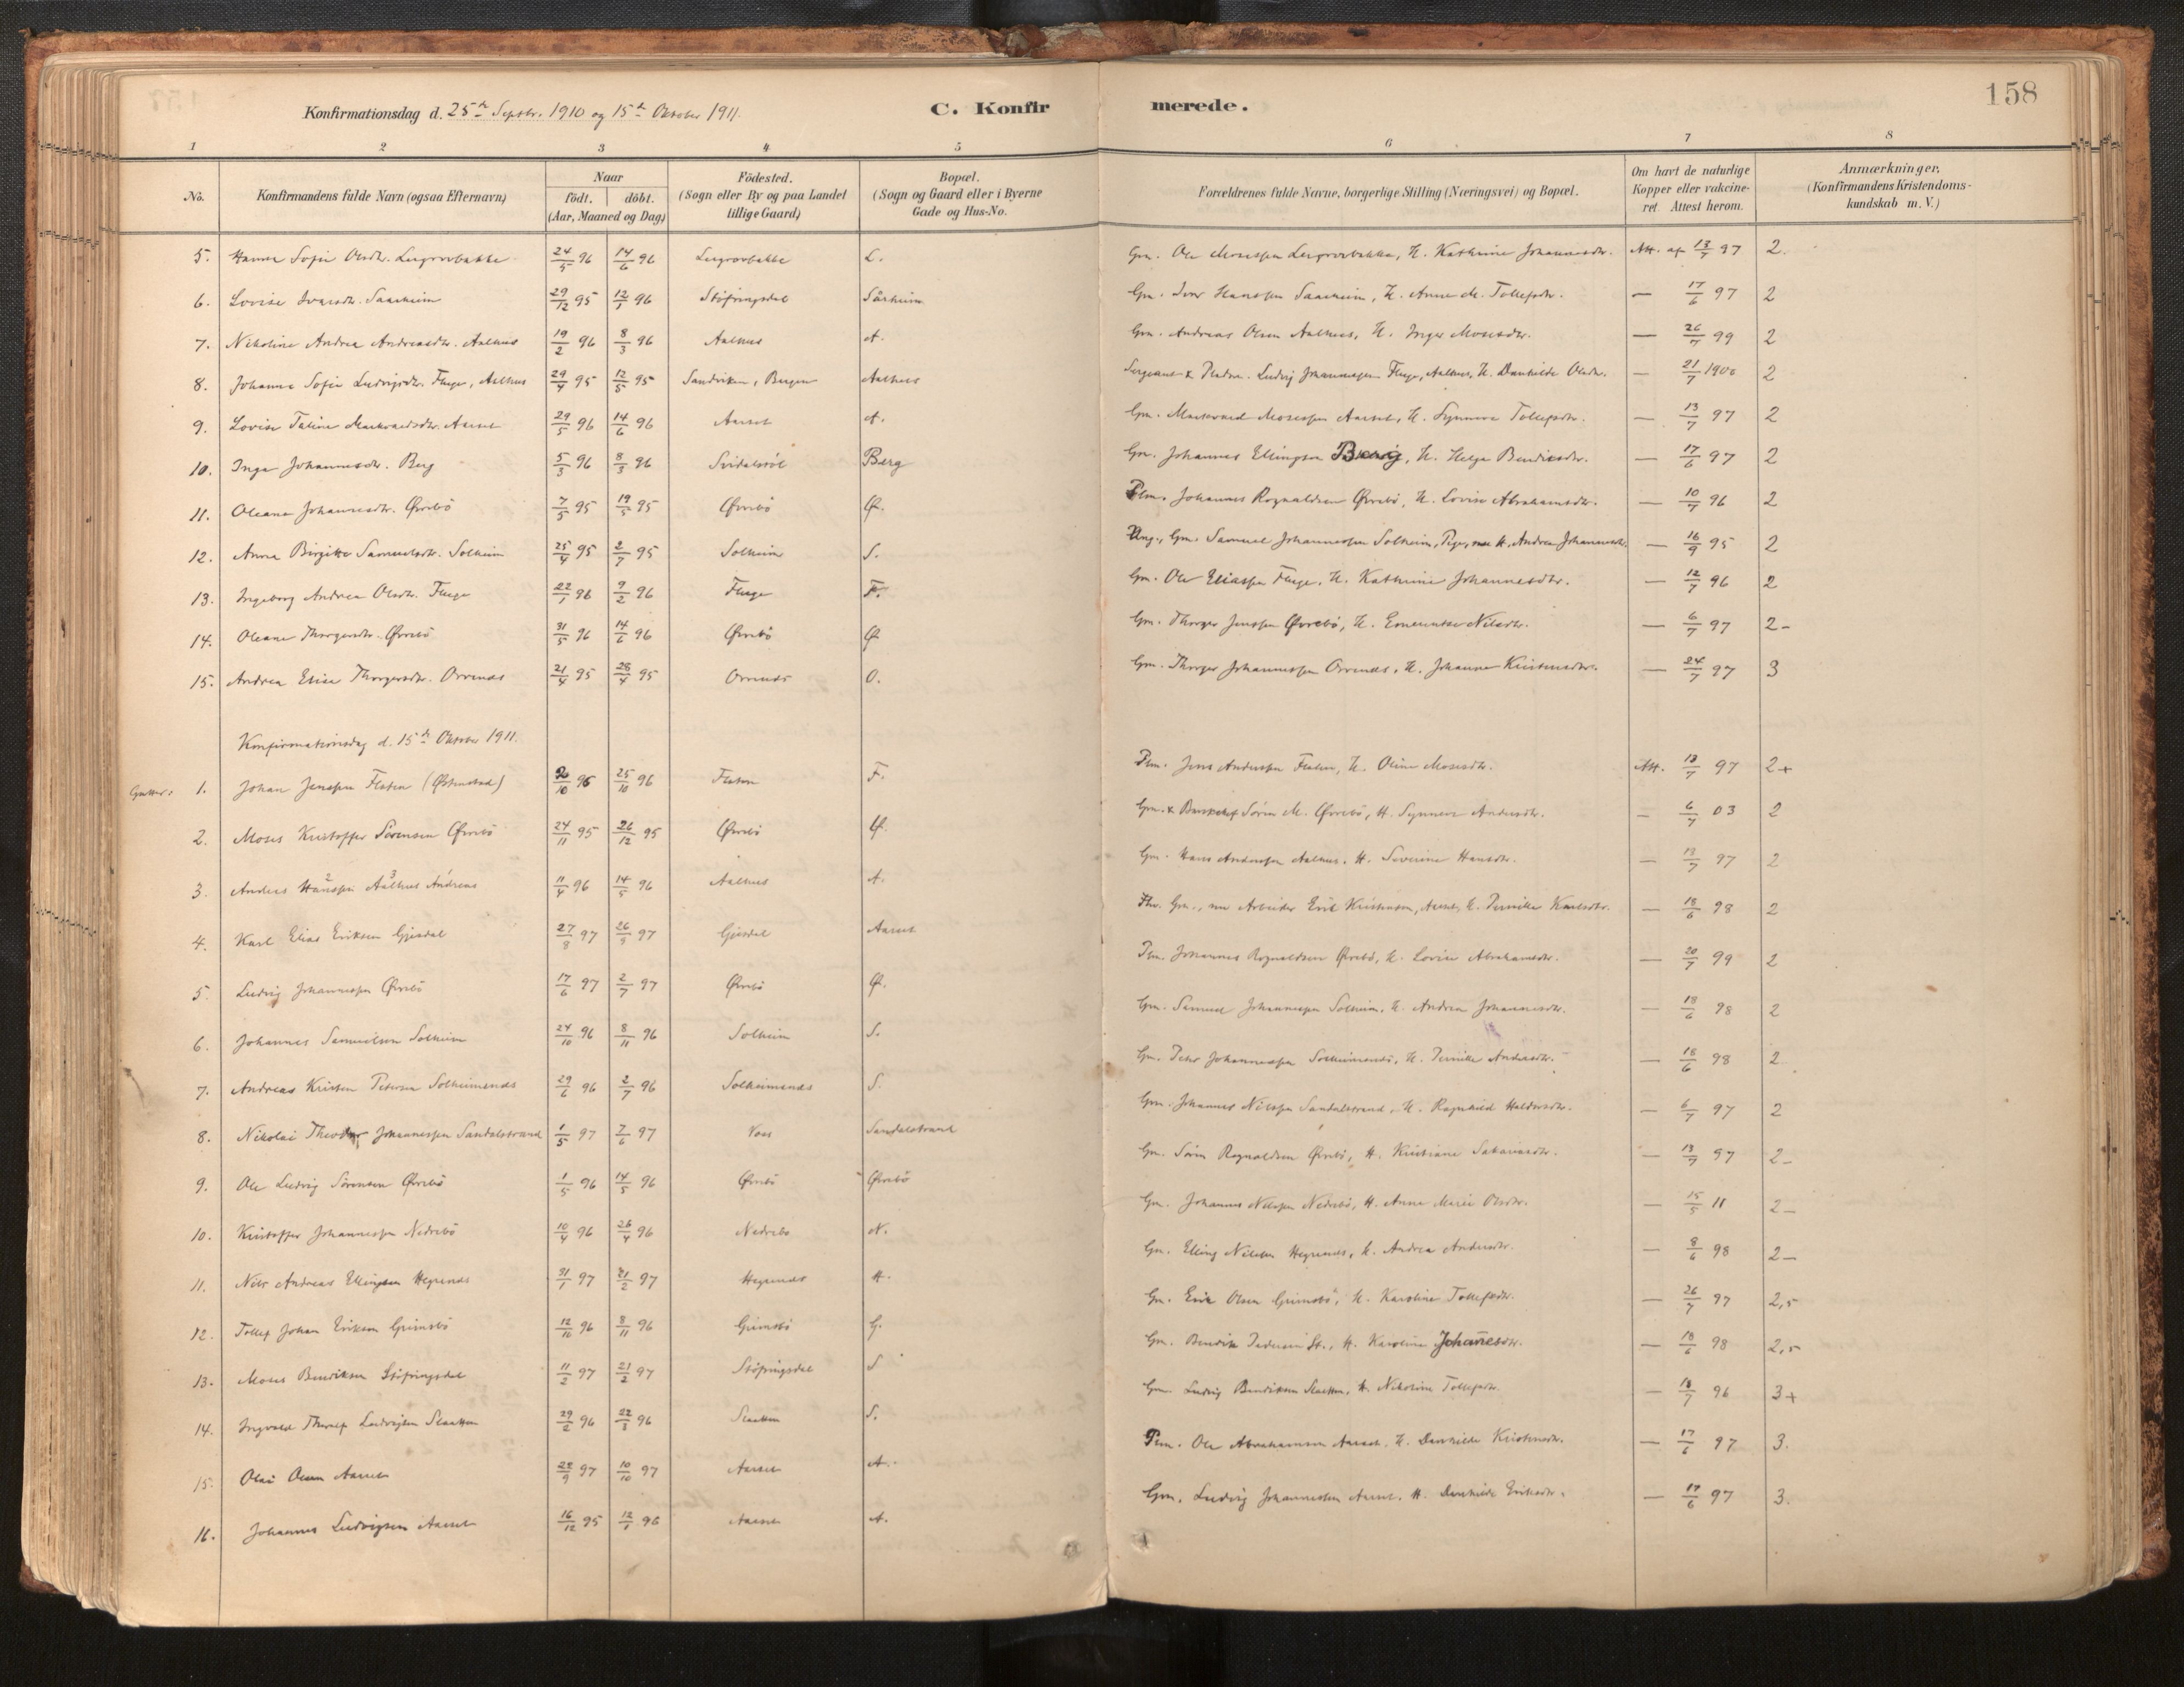 158
Konfirmationsdag d. 25de Septbr. 1910 og 15de Oktober 1911.
C. Konfir merede.
1 2 3 4 5 6 7 8
No. Konfirmandens fulde Navn (ogsaa Efternavn) Naar födt. döbt. (Aar, Maaned og Dag) Födested. (Sogn eller By og paa Landet tillige Gaard) Bopæl. (Sogn og Gaard eller i Byerne Gade og Hus-No. Forældrenes fulde Navne, borgerlige Stilling (Næringsvei) og Bopæl. Om havt de naturlige Kopper eller vakcineret Attest herom. Anmærkninger. (Konfirmandens Kristendomskundskab m. V.)
5. Hanna Sofie Olsdtr. 24/5 96 14/6 96 L. Gm. Ole Mosessen H. Kathrine Johannesdtr. Att. af 13/7 97 2.
6. Lovise Ivarsdtr. Saarheim 29/12 95 12/1 96 Stöfringsdal Sårheim Gm. Ivar Hanssen Saarheim, H. Anne M. Tollefsdtr. — 17/6 97 2
7. Nikoline Andrea Andreasdtr. Aalhus 19/2 96 8/3 96 Aalhus A. Gm. Andreas Olsen Aalhus, H. Inger Mosesdtr. — 26/7 99 2
8. Johanna Sofie Ludvigsdtr. Fluge, Aalhus 29/4 95 12/5 95 Sandviken, Bergen Aalhus Sergeant & Ludvig Johannessen Fluge, Aalhus, H. Danhilde Olsdtr. — 21/7 1900 2
9. Lovise Taline Markvardsdtr. Aarset 29/5 96 14/6 96 Aarset A. Gm. Markvard Mosessen Aarset, H. Synneva Tollefsdtr. — 13/7 97 2
10. Inga Johannesdtr. Berg 5/3 96 8/3 96 Berg Gm. Johannes Ellingsen Berg, H. Helga Bendiksdtr. — 17/6 97 2
11. Oleana Johannesdtr. Øvrebö 7/5 95 19/5 95 Øvrebö Ø. Plm. Johannes Rognaldsen Øvrebö, H. Lovise Abrahamsdtr. — 10/7 96 2
12. Anna Birgitte Samuelsdtr. Solheim 25/4 95 2/7 95 Solheim S. Ung., Gm. Samuel Johannessen Solheim, Pige, nu H. Andrea Johannesdtr. — 16/9 95 2
13. Ingeborg Andrea Olsdtr. Fluge 22/1 96 9/2 96 Fluge F. Gm. Ole Eliassen Fluge, H. Kathrine Johannesdtr. — 12/7 96 2
14. Oleana Thorgersdtr. Øvrebö 31/5 96 14/6 96 Øvrebö Ø Gm. Thorger Jenssen Øvrebö, H. Emerentse Nilsdtr. — 6/7 97 2-
15. Andrea Elise Thorgersdtr. Orrenæs 21/4 95 28/4 95 Orrenæs O. Gm. Thorger Johannessen Orrenæs, H. Johanna Kristensdtr. — 24/7 97 3
Konfirmationsdag d. 15de Oktober 1911.
Gutter: 1. Johan Jenssen Flaten 2/10 96 25/10 96 Flaten F. Plm. Jens Anderssen Flaten, H. Oline Mosesdtr. Att. 13/7 97 2+
2. Moses Kristoffer Sörensen Øvrebö 24/11 95 26/12 95 Øvrebö Ø. Gm. & Sörin M. Øvrebö, H. Synneva Andersdtr. — 6/7 03 2
3. Anders Hanssen Aalhus Andreas 11/4 96 14/5 96 Aalhus A. Gm. Hans Anderssen Aalhus, H. Severine Hansdtr. — 13/7 97 2
4. Karl Elias Eriksen Gjesdal 27/8 97 26/9 97 Gjesdal Aarset Fhv. Gm., nu Arbeider Erik Kristensen, Aarset, H. Pernille Karlsdtr. — 18/6 98 2
5. Ludvig Johannessen Øvrebö 17/6 97 2/7 97 Øvrebö Ø. Plm. Johannes Rognaldsen Øvrebö, H. Lovise Abrahamsdtr. — 20/7 99 2
6. Johannes Samuelsen Solheim 24/10 96 8/11 96 Solheim S. Gm. Samuel Johannessen Solheim, H. Andrea Johannesdtr. — 18/6 98 2
7. Andreas Kristen Petersen Solheimsnæs 29/6 96 2/7 96 Solheimsnæs S. Gm. Peter Johannessen Solheimsnæs, H. Pernille Andersdtr. — 18/6 98 2
8. Nikolai Theodor Johannessen Sandalstrand 1/5 97 7/6 97 Voss Sandalstrand Gm. Johannes Nilssen Sandalstrand, H. Ragnhild Haldorsdtr. — 6/7 97 2
9. Ole Ludvig Sörensen Øvrebö 1/5 96 14/5 96 Øvrebö Øvrebö Gm. Sörin Rognaldsen Øvrebö, H. Kristiane Sakariasdtr. — 13/7 97 2-
10. Kristoffer Johannessen Nedrebö 10/4 96 26/4 96 Nedrebö N. Gm. Johannes Nilssen Nedrebö, H. Anna Marie Olsdtr. — 15/5 11 2-
11. Nils Andreas Ellingsen Hegrenæs 31/1 97 21/2 97 Hegrenæs H. Gm. Elling Nilssen Hegrenæs, H. Andrea Andersdtr. — 8/6 98 2-
12. Tollef Johan Eriksen Grimsbö 12/10 96 8/11 96 Grimsbö G. Gm. Erik Olsen Grimsbö, H. Karoline Tollefsdtr. — 26/7 97 2,5
13. Moses Bendiksen Stöfringsdal 11/2 97 21/2 97 Stöfringsdal S Gm. Bendik Pedersen St., H. Karoline Johanesdtr. — 18/6 98 2,5
14. Ingvald Thoralf Ludvigsen Slaatten 29/2 96 22/3 96 Slaatten S. Gm. Ludvig Bendiksen Slaatten, H. Nikoline Tollefsdtr. — 18/7 96 3+
15. Olai Olsen Aarset 22/9 97 10/10 97 Aarset A. Plm. Ole Abrahamsen Aarset, H. Danhilde Kristensdtr. — 17/6 97 3.
16. Johannes Ludvigsen Aarset 16/12 95 12/1 96 Aarset A. Gm. Ludvig Johannessen Aarset, H. Danhilde Eriksdtr. — 17/6 97 3.